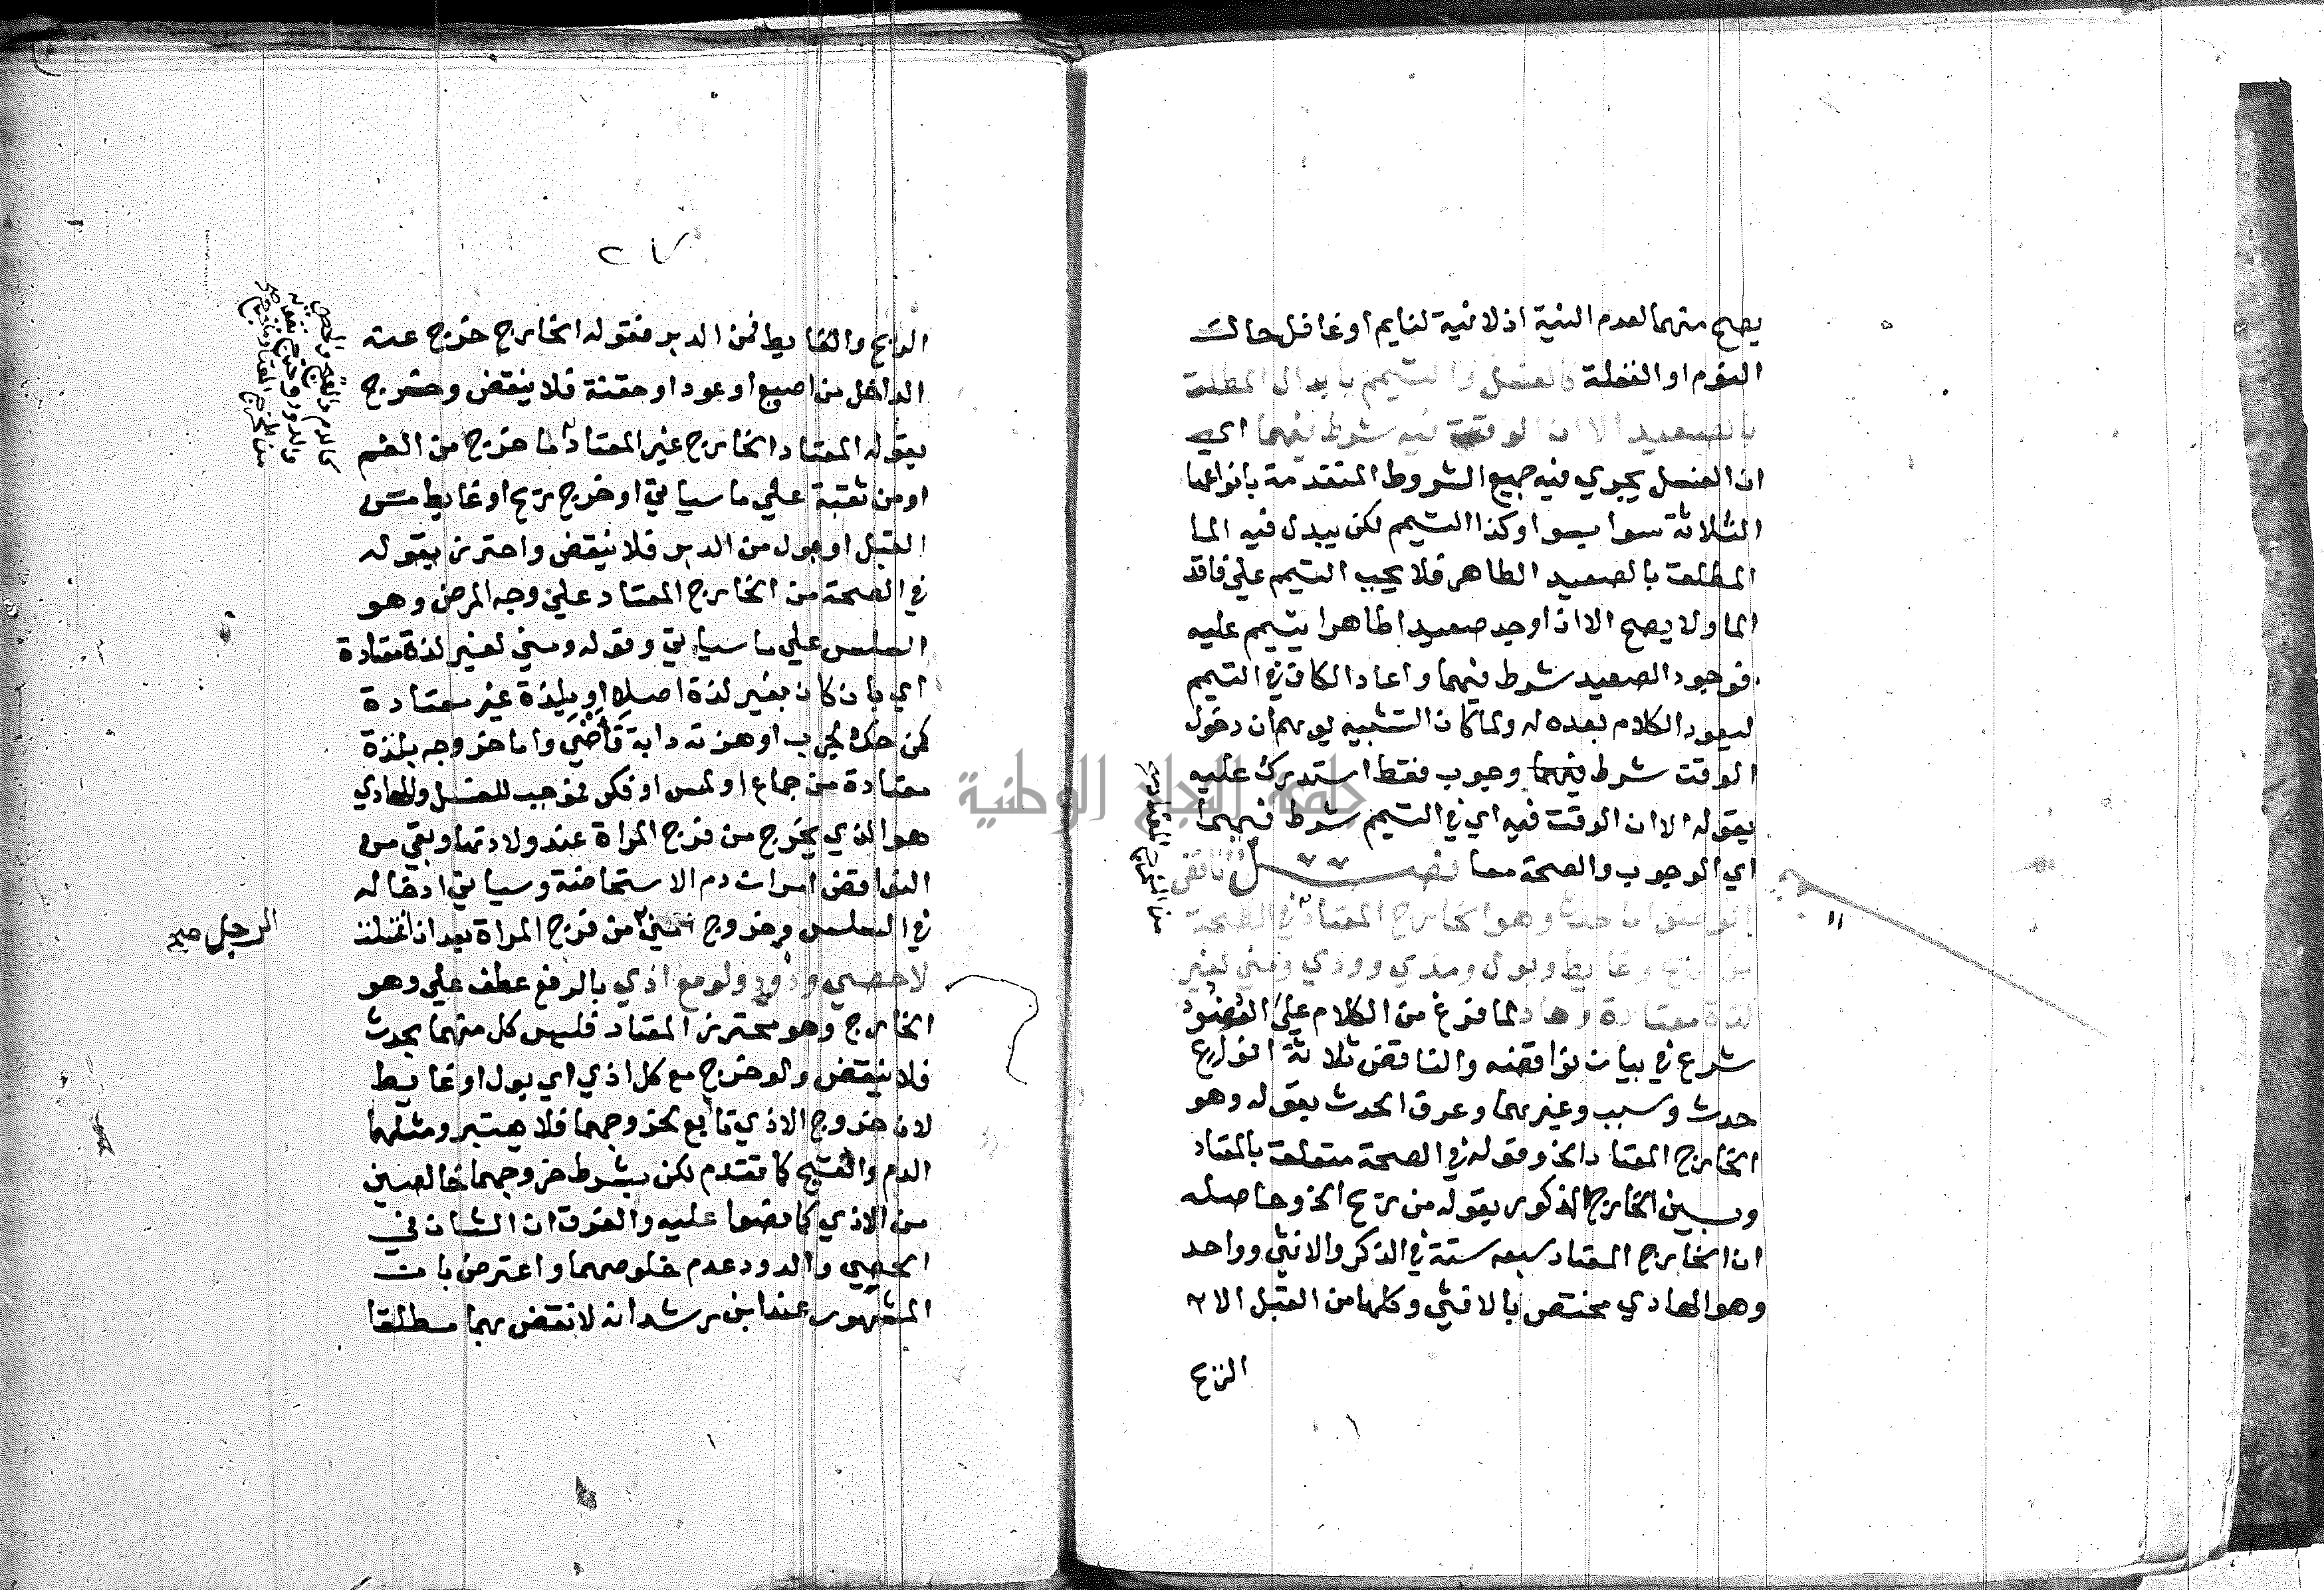 يصح منهما لعدم النية اذ لانية لنايم او غافل حالت
النوم او الغفلة كالغسل والتيمم بابدال المطلق
بالصعيد الا ان الوقت فيه شرط فيهما اي
ان الغسل يجري فيه جميع الشروط المتقدمة بانواعها
الثلاثة سوا بسوا وكذا التيمم لكن يبدل فيه الما
المطلق بالصعيد الطاهر فلا يجب التيمم علي فاقد
الما ولا يصح الا اذا وجد صعيدا طاهرا يتيمم عليه
فوجود الصعيد شرط فيهما واعاد الكاف في التيمم
ليعود الكلام بعده له ولما كان التشبيه يوهم ان دخول
الوقت شرط فيهما وجوب فقط استدرك عليه
بقوله الا ان الوقت فيه اي في التيمم شرط فيهما
اي الوجوب والصحة معا فصل ناقض
الوضوء اما حدث وهو الخارج المعتاد في الصحة
من ريح وغايط وبول ومذي وودي ومني لغير
لذة معتادة وهاد لما فرغ من الكلام علي الوضوء
شرع في بيان نواقضه والناقض ثلاثة انواع
حدث وسبب وغيرهما وعرف الحدث بقوله وهو
الخارج المعتاد الخ وقوله في الصحة متعلق بالمعتاد
وبين الخارج المذكور بقوله من ريح الخ وحاصله
ان الخارج المعتاد سبعه ستة في الذكر والانثي وواحد
وهو الهادي مختص بالانثي وكلها من القبل الا
الريح
من المخرج المعتاد
جامعة النجاح الوطنية
الريح والغايط فمن الدبر فقوله الخارج خرج عنه
الداخل من اصبع او عود او حقنة فلا ينقض وخرج
بقوله المعتاد الخارج غير المعتاد لما خرج من الفم
او من ثقبة علي ما سياتي او خرج ريح او غايط من
القبل او بول من الدبر فلا ينقض واحترز بقوله
في الصحة من الخارج المعتاد علي وجه المرض وهو
السلس علي ما سياتي وقوله ومني لغير لذة معتادة
اي بان كان بغير لذة اصلا او بلذة غير معتادة
كمن حك لجرب او هزته دابة فامني واما خروجه بلذة
معتادة من جماع او لمس او فكر فموجب للغسل والهادي
هو الذي يخرج من فرج المراة عند ولادتها وبقي من
النواقض امران دم الاستحاضة وسياتي ادخاله
في السلس وخروج مني من فرج المراة بعد ان اغتسلت
لا حصي ودود ولو مع اذي بالرفع عطف علي وهو
الخارج وهو محترز المعتاد فليس كل منهما بحدث
فلا ينقض ولو خرج مع كل اذي اي بول او غايط
لان خروج الاذي تابع لخروجهما فلا يعتبر ومثلهما
الدم والقيح كما تقدم لكن بشرط خروجهما خالصين
من الاذي كما نصوا عليه والفرق ان الشان في
الحصي والدود عدم خلوصهما واعترض بان
المشهور عند ابن رشد انه لا نقض بهما مطلقا
كالدم والقيح والحصي
والدود وخرج بقوله
من المخرج المعتاد ما خرج
الرجل صح